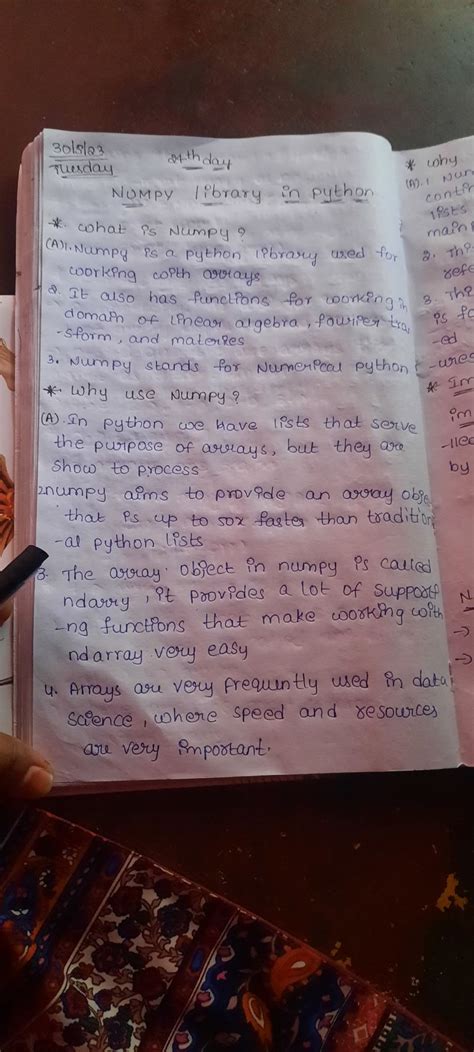 30/5/23
Tuesday
24th day
NUMPY library in python
* what is Numpy?
(A)1. Numpy is a python library used for
working with arrays
2. It also has functions for working in
domain of linear algebra, fourier tra
-sform, and materies
3. Numpy stands for Numerical python
* Why use Numpy?
(A). In python we have lists that serve
the purpose of arrays, but they are
show to process
2.numpy aims to provide an array obje
that is up to 50x faster than tradition
-al python lists
3. The array object in numpy is called
ndarry, it provides a lot of supporti
-ng functions that make working with
ndarray very easy
4. Arrays are very frequently used in data
science, where speed and resources
are very important.
* why
(A). 1 Num
conti
lists
main
2. Thi
refe
3. Thi
is fa
-ed
-ures
* Im
im
-lled
by
N
→
→